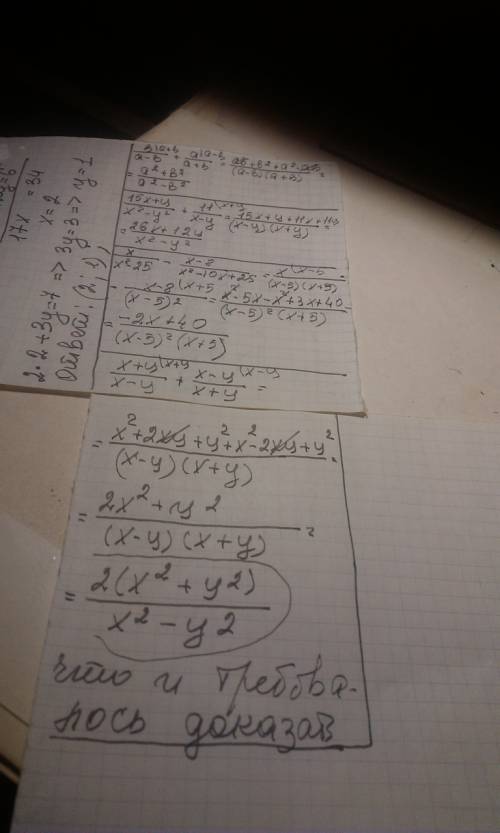 17x = 34
x = 2
2·2+3y=7 => 3y=3 => y=1
Ответ: (2; 1)
b\a+b/a-b + a\a-b/a+b = ab+b²+a²-ab/(a-b)(a+b) =
= a²+b²/a²-b²
15x+y/x²-y² + 11\x+y/x-y = 15x+y+11x+11y/(x-y)(x+y) =
= 26x+12y/x²-y²
x/x²25 - x-8/x²-10x+25 = x\x-5/(x-5)(x+5) -
- x-8\x+5/(x-5)² = x²-5x-x²+3x+40/(x-5)²(x+5)
= -2x+40/(x-5)²(x+5)
x+y\x+y/x-y + x-y\x-y/x+y =
= x²+2xy+y²+x²-2xy+y²/(x-y)(x+y) =
= 2x²+y²/(x-y)(x+y) =
= 2(x²+y²)/x²-y²
что и требова-
лось доказать